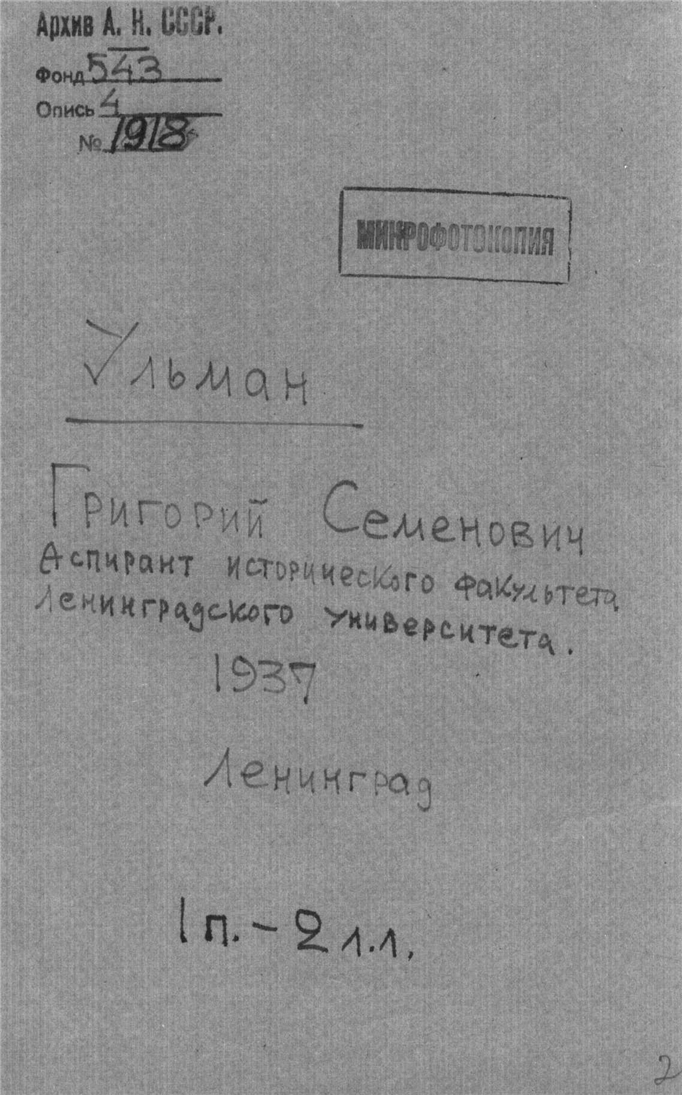 Архив А. Н. СССР.
Фонд 543
Опись 4
№ 1918
МИКРОФОТОКОПИЯ
Ульман
Григорий Семенович
Аспирант исторического факультета
Ленинградского университета.
1937
Ленинград
1 п. - 2 л.л.
2